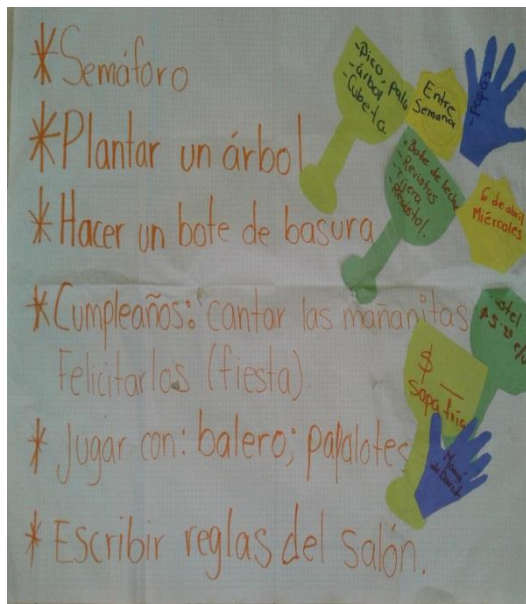 *Semáforo
*Plantar un árbol
*Hacer un bote de basura
*Cumpleaños: cantar las mañanitas
Felicitarlos (fiesta).
*Jugar con: balero; papalotes
*Escribir reglas del salón.
-pico, pala
-árbol
-Cubeta
Entre
Semana
-papás
-Bote de leche
-Revistas
-Tijera
-Resistol.
6 de abril
Miércoles
$5.00 c/u
$
sopa fría
Mamá
de David